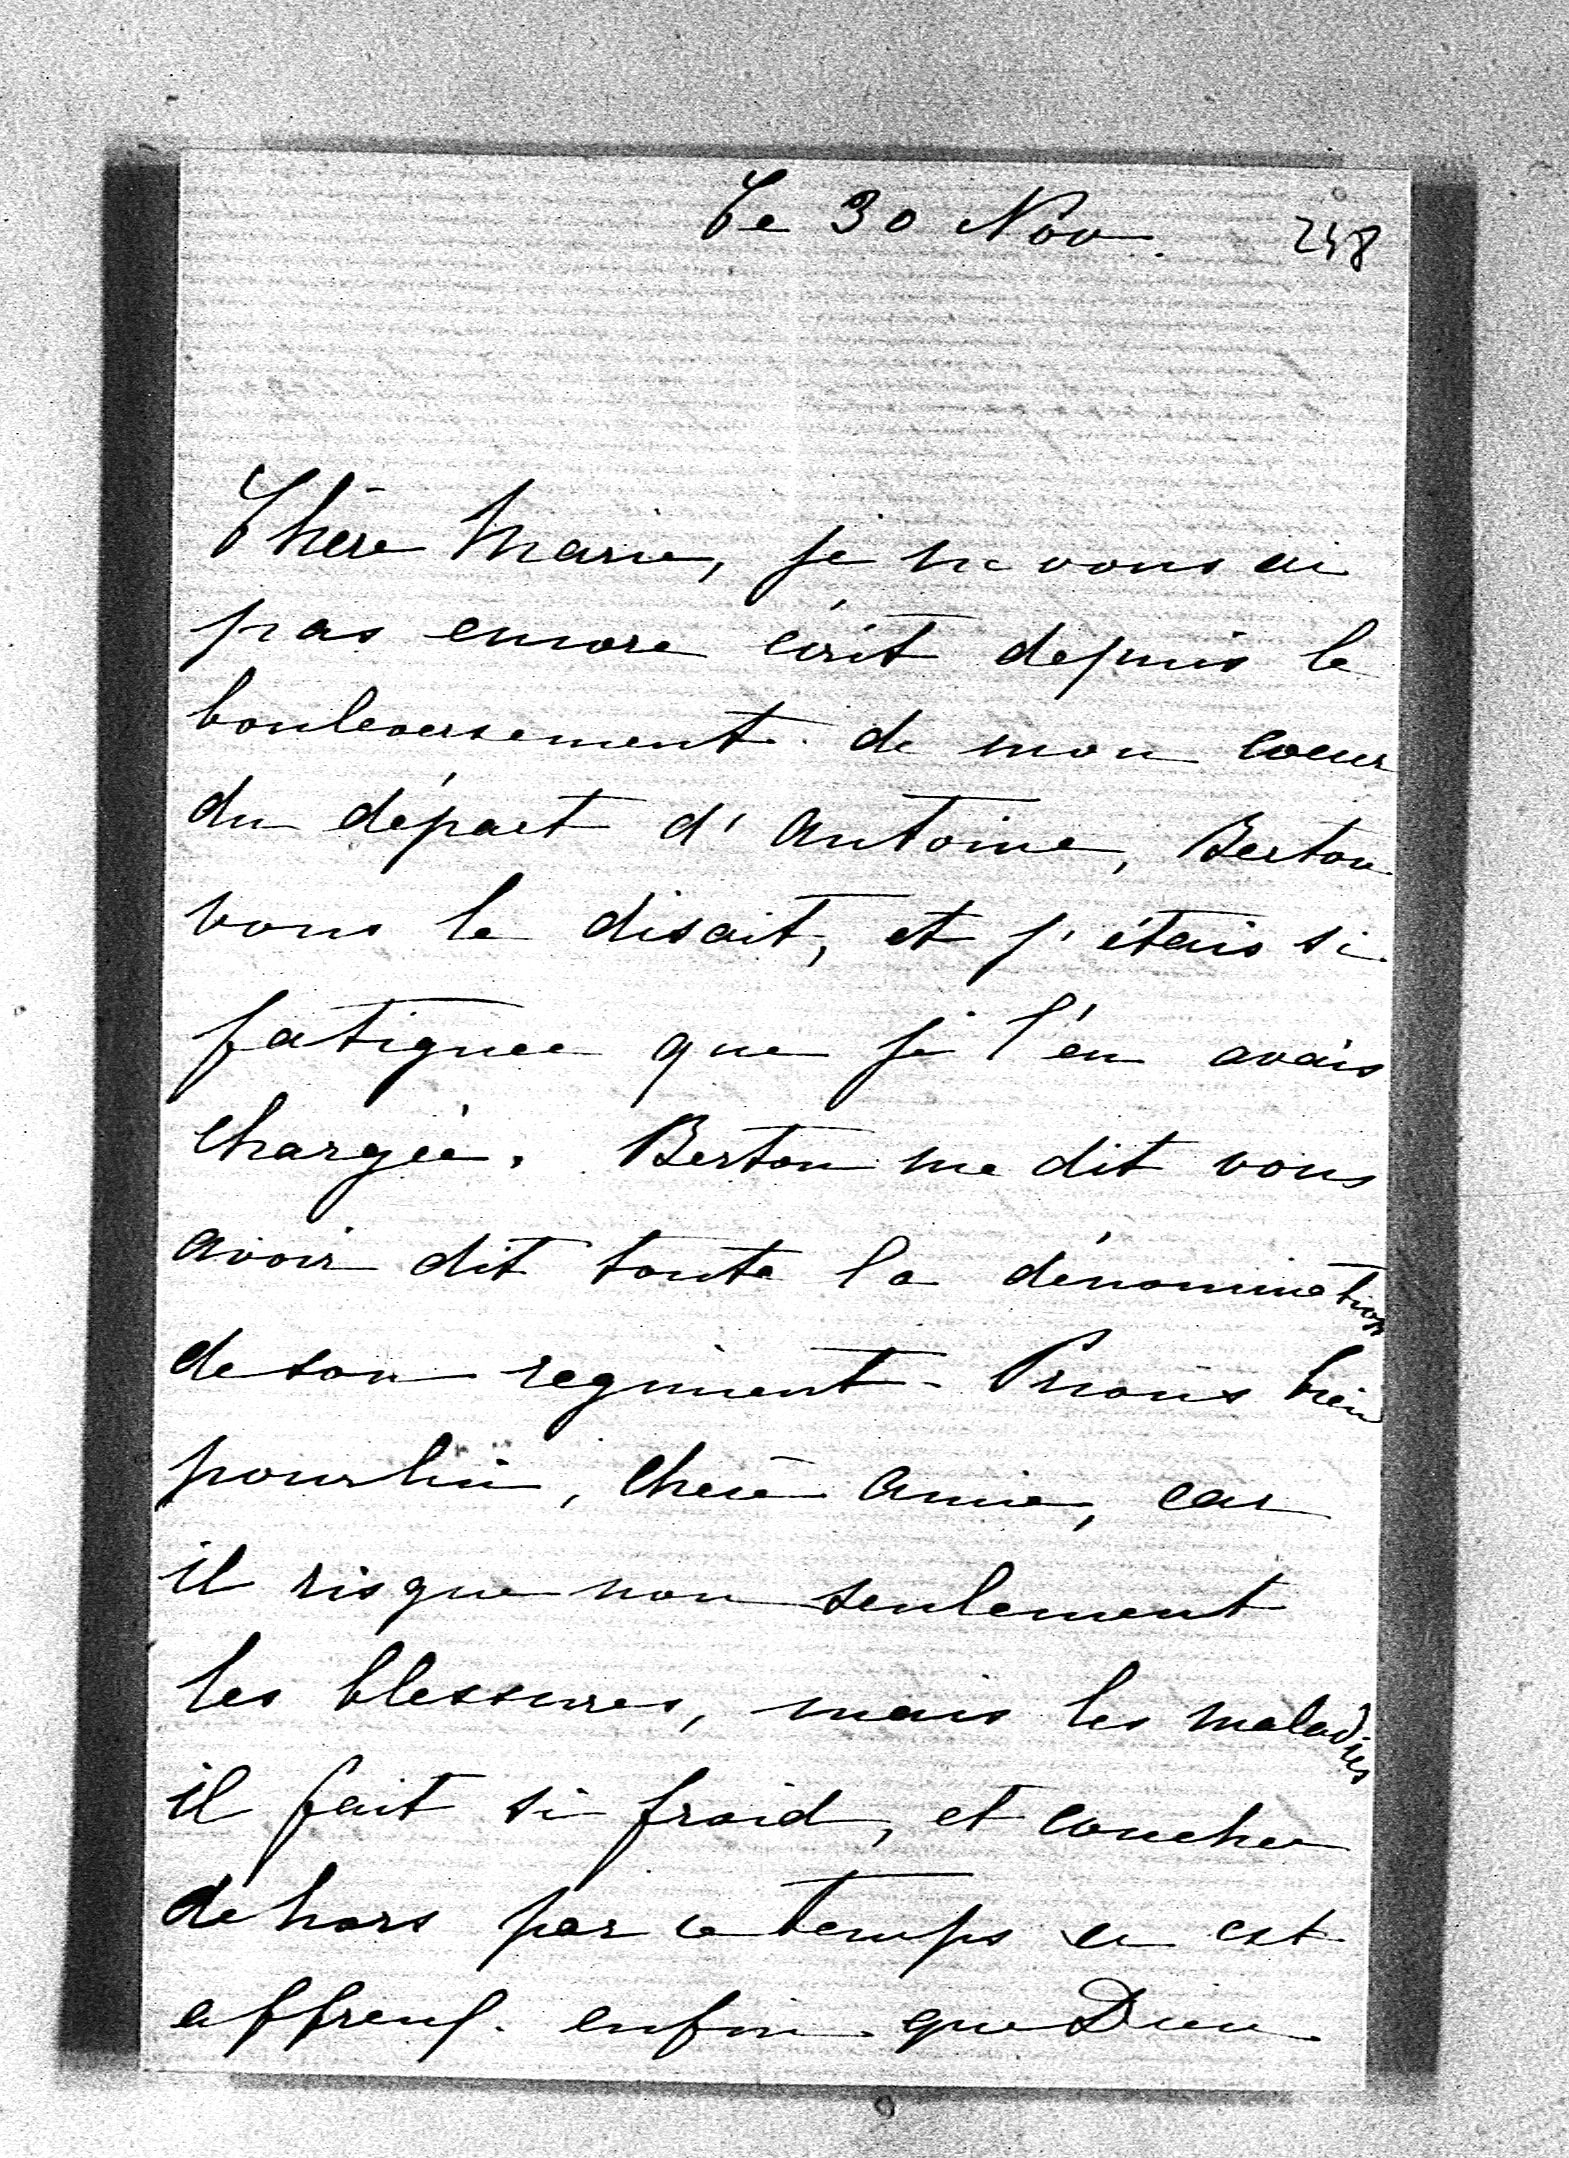 Le 30 Nov. 258
Chère Marie, je ne vous ai
pas encore écrit depuis le
bouleversement de mon coeur
du départ d'Antoine, Berton
vous le disait, et j'étais si
fatiguée que je l'en avais
chargée. Berton me dit vous
avoir dit toute la dénomination
de son regiment. Prions bien
pour lui, chère amie, car
il risque non seulement
les blessures, mais les maladies
il fait si froid, et coucher
dehors par ce temps ci est
affreux. enfin que Dieu